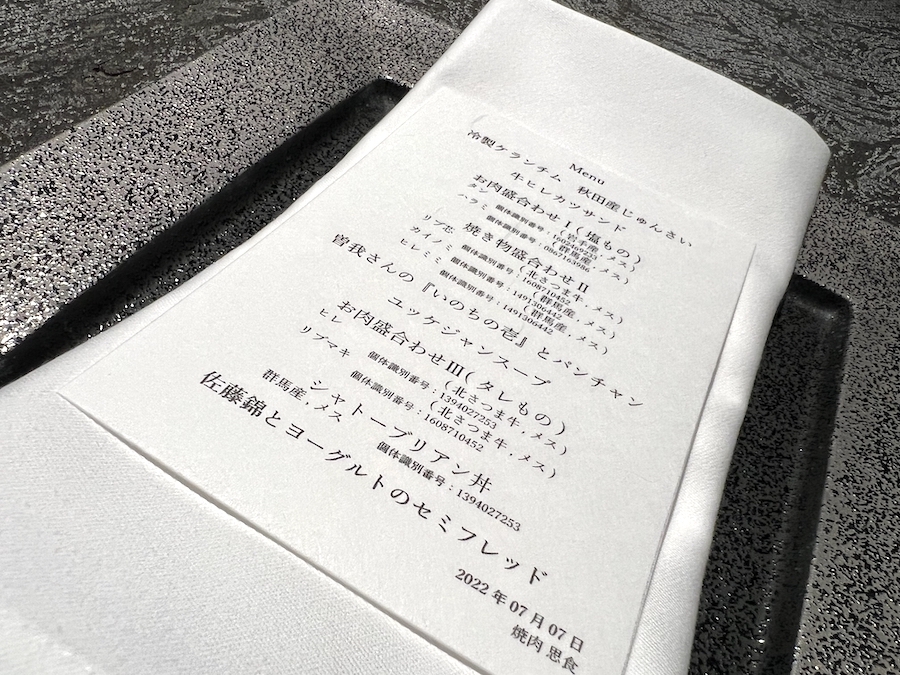 Menu
冷製ケランチム 秋田産じゅんさい
牛ヒレカツサンド
お肉盛合わせⅠ(塩もの)
タン 個体識別番号：1602469233 (岩手産，メス)
ハラミ 個体識別番号：0867163986 (群馬産，メス)
焼き物盛合わせⅡ
リブ芯 個体識別番号：1608710452 (北さつま牛，メス)
カイノミ 個体識別番号：1491306442 (群馬産，メス)
ヒレミミ 個体識別番号：1491306442 (群馬産，メス)
曽我さんの『いのちの壱』とパンチャン
ユッケジャンスープ
お肉盛合わせⅢ(タレもの)
ヒレ 個体識別番号：1394027253 (北さつま牛，メス)
リブマキ 個体識別番号：1608710452 (北さつま牛，メス)
シャトーブリアン丼
群馬産，メス 個体識別番号：1394027253
佐藤錦とヨーグルトのセミフレッド
2022年07月07日
焼肉 思食